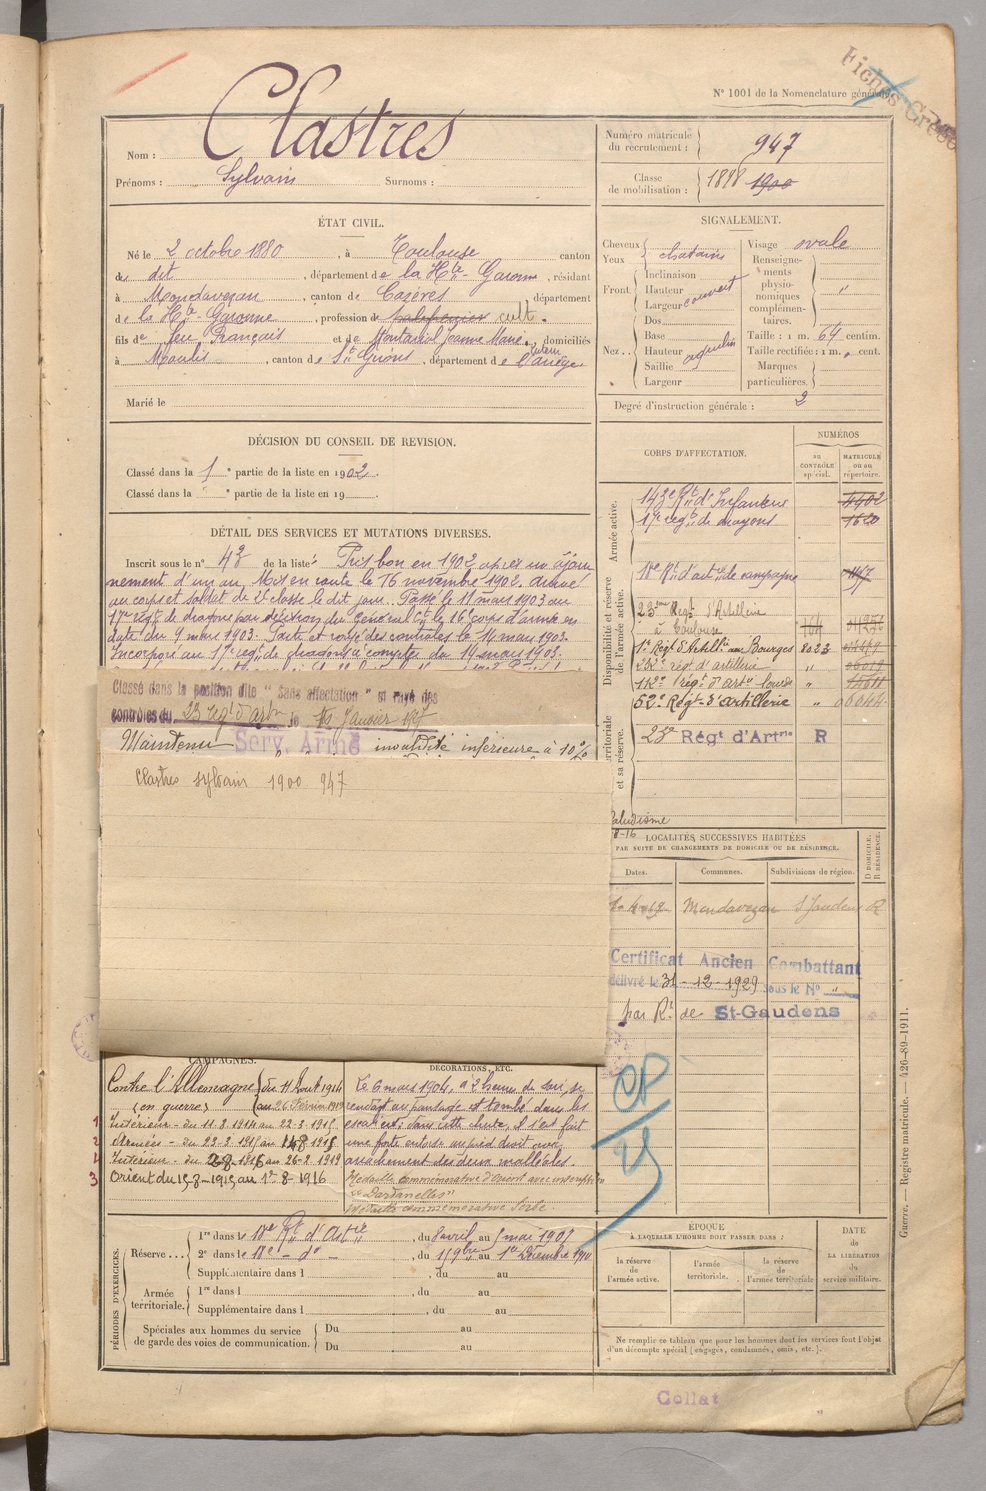 Fiches Grises
N° 1001 de la Nomenclature générale
Nom : Clastres
Prénoms : Sylvain Surnoms :
Numéro matricule du recrutement : 947
Classe de mobilisation : 1898 1900
ÉTAT CIVIL.
Né le 2 octobre 1880, à Toulouse canton
de dit, département de la Hte-Garonne, résidant
à Mondavezan, canton de Cazères département
de la Hte-Garonne, profession de palefrenier cult.
fils de feu François et de Montariol Jeanne Marie, domiciliés
à Moulis, canton de St Girons, département de l'Ariège
Marié le
SIGNALEMENT.
Cheveux chatains
Yeux
Front. Inclinaison
Hauteur couvert
Largeur
Nez Dos
Base
Hauteur aquilin
Saillie
Largeur
Visage ovale
Renseignements physionomiques complémentaires. "
Taille : 1 m. 64 centim.
Taille rectifiée : 1 m. " cent.
Marques particulières.
Degré d'instruction générale : 2
DÉCISION DU CONSEIL DE REVISION.
Classé dans la 1e partie de la liste en 1902.
Classé dans la e partie de la liste en 19
DÉTAIL DES SERVICES ET MUTATIONS DIVERSES.
Inscrit sous le n° 43 de la liste. Pris bon en 1902 après un ajour
nement d'un an. Mis en route le 16 novembre 1902. Arrivé
au corps et soldat de 2e classe le dit jour. Passé le 11 mars 1903 au
17e régt de dragons par décision du Général Ct le 16e corps d'armée en
date du 9 mars 1903. Parti et rayé des contrôles le 14 mars 1903.
Incorporé au 17e régt de dragons à compter du 14 mars 1903.
Classé dans la position dite "Sans affectation" et rayé des
contrôles du 23 régt d'artie le 15 Janvier 1927
Maintenu Serv. Armé invalidité inférieure à 10%
Clastres Sylvain 1900 947
CORPS D'AFFECTATION.
NUMÉROS
au contrôle spécial.
matricule ou au répertoire.
Armée active.
143e Rt d'Infanterie 4402
17e régt de dragons 1620
Disponibilité et réserve de l'armée active.
18e Rt d'artie de campagne
23ème Régt d'Artillerie
à Toulouse
1er Régt d'Artillie au Bourges
régt d'artillerie "
112e régt d'artie lourde "
52e Régt d'Artillerie "
23e Régt d'Artrie R
et sa réserve.
Paludisme
8-16
LOCALITÉS SUCCESSIVES HABITÉES
PAR SUITE DE CHANGEMENTS DE DOMICILE OU DE RÉSIDENCE.
Dates. Communes. Subdivisions de région. D DOMICILE. R RÉSIDENCE.
Mondavezan St Gaudens R
Certificat Ancien Combattant
délivré le 31-12-1929 sous le N° "
par Rt de St-Gaudens
CAMPAGNES.
Contre l'Allemagne du 11 Aout 1914
(en guerre) au 26 Février 1919
1 Intérieur - du 11-8-1914 au 22-3-1915
2 Armées - du 23-3-1915 au 14 8 1915
4 Intérieur - du 2-8-1916 au 26-2-1919
3 Orient du 15-8-1915 au 1er-8-1916
DÉCORATIONS, ETC.
Le 6 mars 1904, à 2 heures du soir, se
rendant au pansage est tombé dans les
escaliers; dans cette chute, il s'est fait
une forte entorse au pied droit avec
arrachement des deux malléoles.
Médaille commémorative d'Orient avec inscription
"Dardanelles"
Médaille commémorative Serbe.
CP
PÉRIODES D'EXERCICES.
Réserve 1re dans le 18e Rt d'Artie, du 8 avril au 5 mai 1907
2e dans le 18e - do -, du 15 9bre au 1er Décembre 1910
Supplémentaire dans l , du au
Armée territoriale. 1re dans l , du au
Supplémentaire dans l , du au
Spéciales aux hommes du service de garde des voies de communication. Du au
Du au
ÉPOQUE
À LAQUELLE L'HOMME DOIT PASSER DANS :
la réserve de l'armée active.
l'armée territoriale.
la réserve de l'armée territoriale
DATE de LA LIBÉRATION du service militaire.
Ne remplir ce tableau que pour les hommes dont les services font l'objet
d'un décompte spécial [engagés, condamnés, omis, etc.].
Guerre. — Registre matricule. — 426-89-1911.
Collat